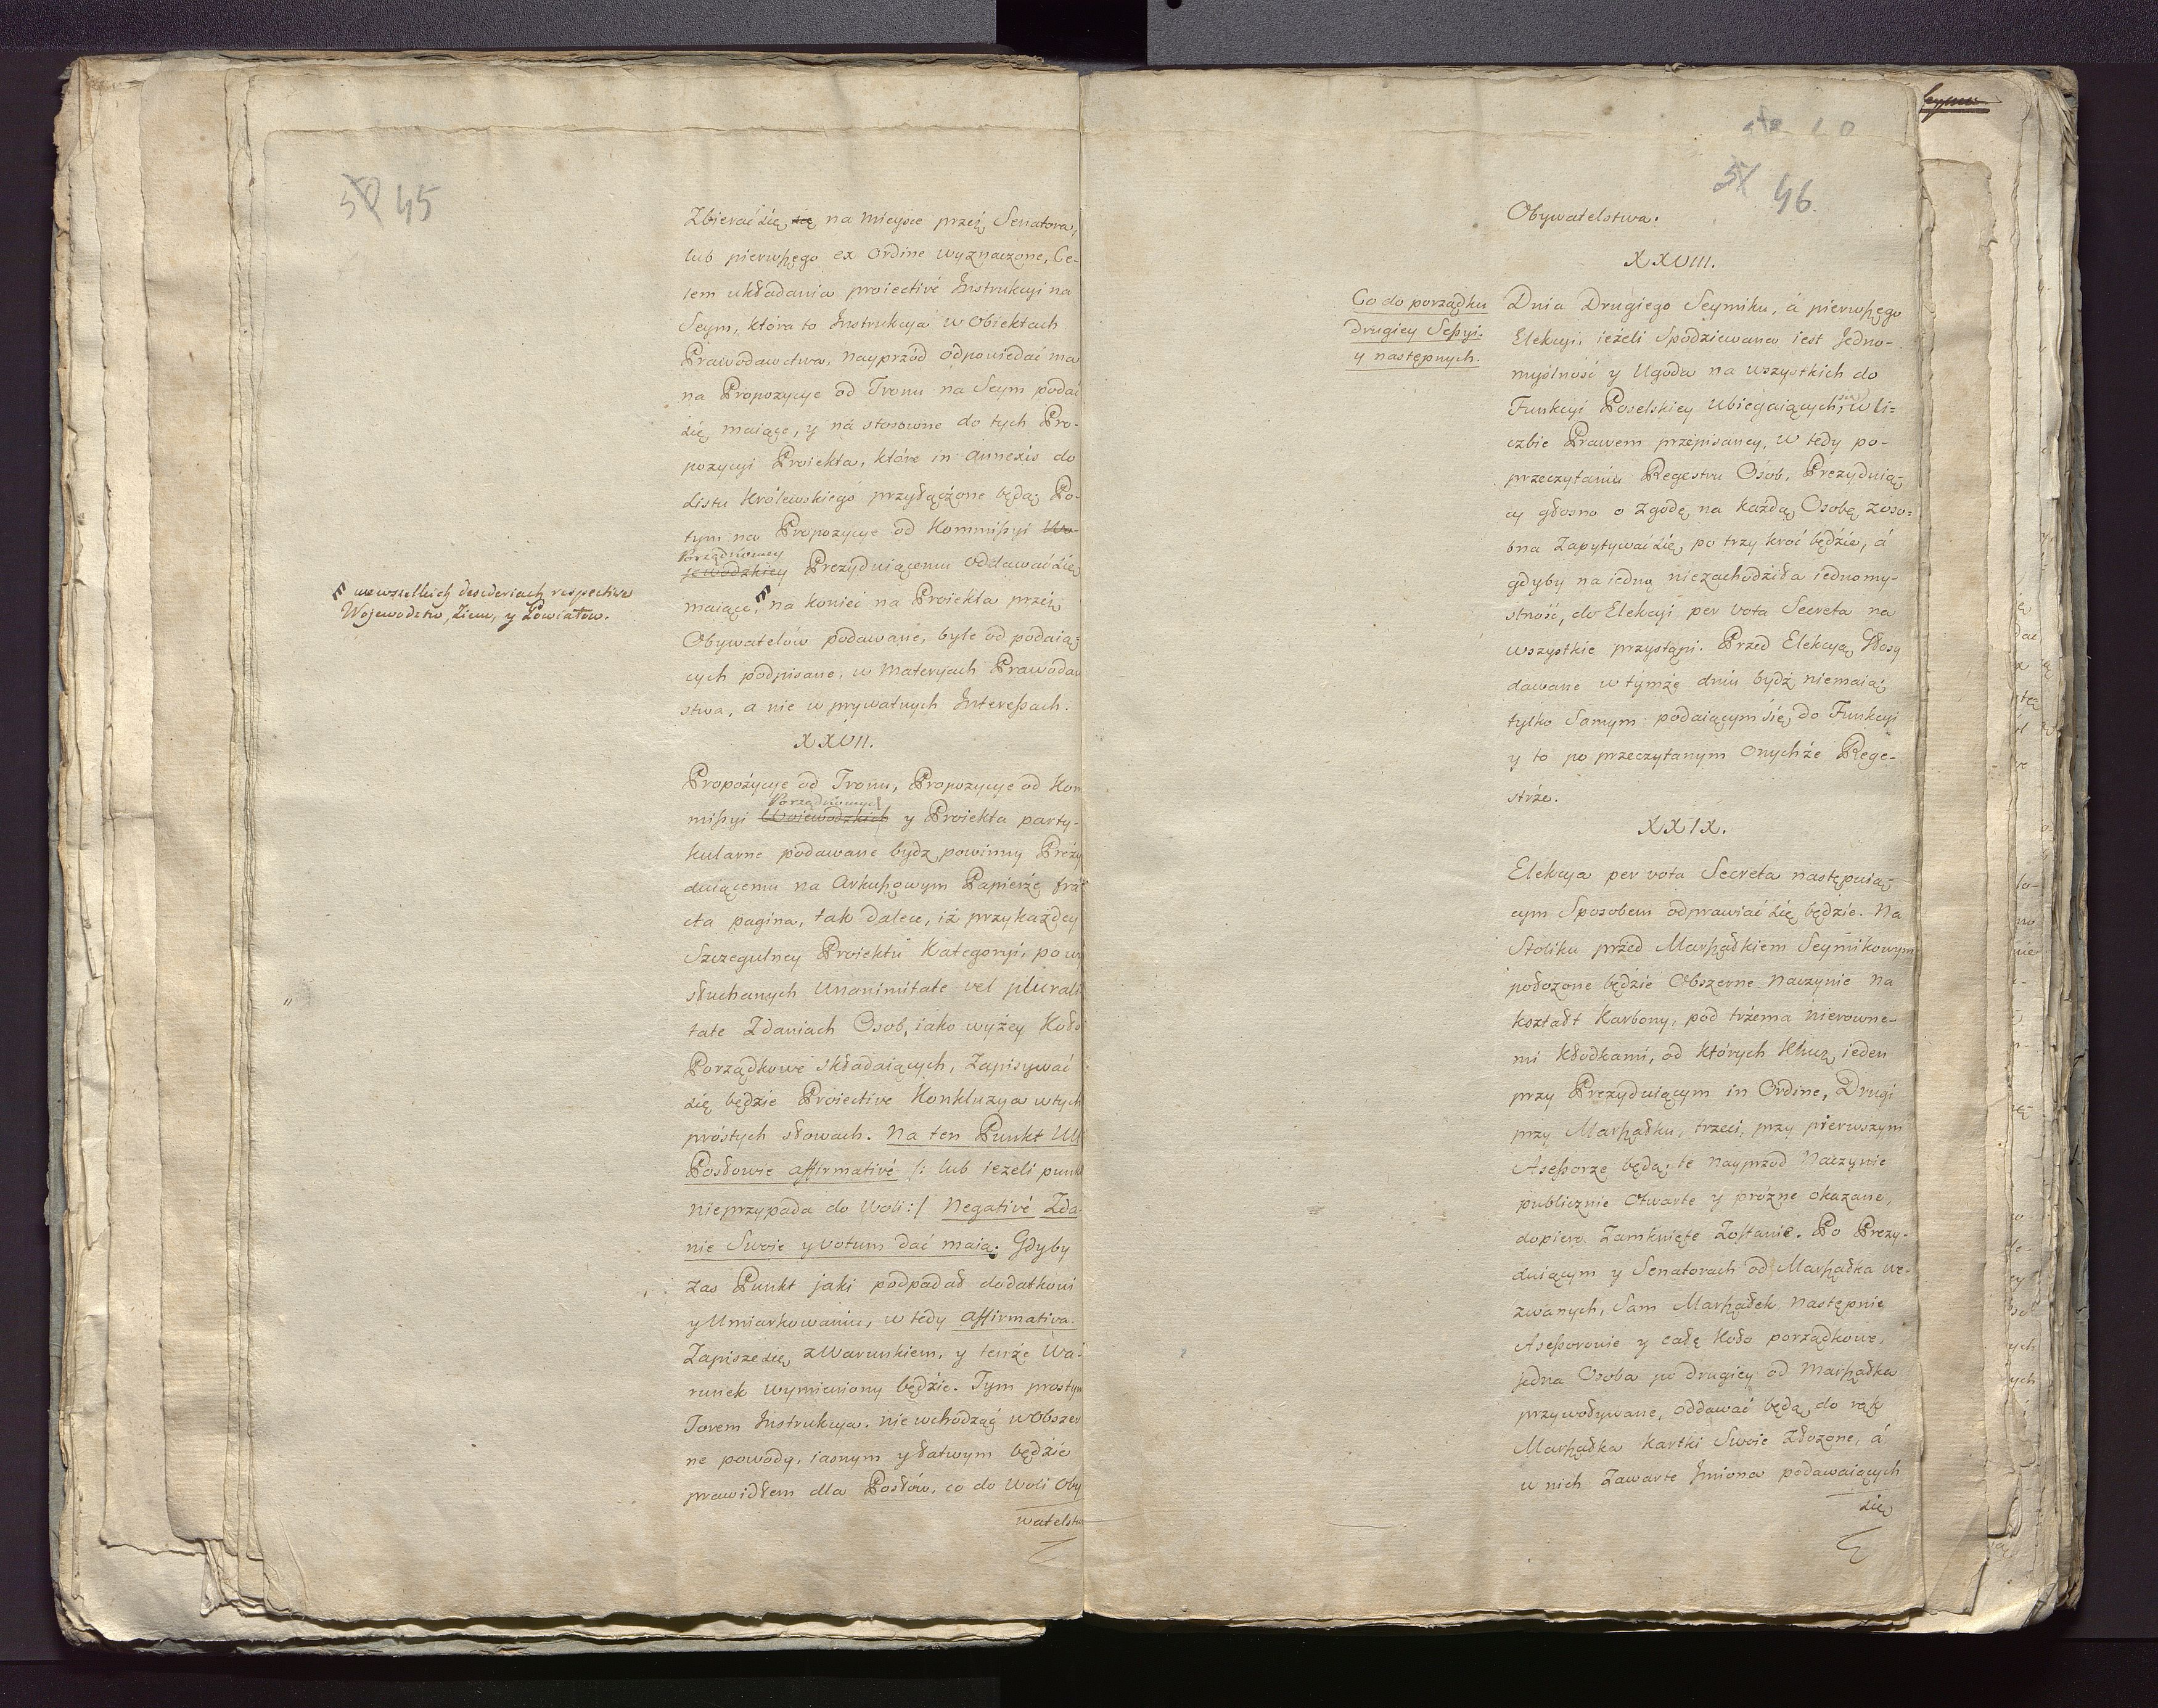 45
Zbierać się się na Mieysce przez Senatora,
lub pierwszego ex Ordine wyznaczone, Ce-
lem układania proiectivé Instrukcyi na
Seym, która to Instrukcya w Obiektach
Prawodawctwa, nayprzód odpowiedać ma
na Propozycye od Tronu na Seym podać
się maiące, y na stosowne do tych Pro-
pozycyi Proiekta, które in annexis do
Listu Królewskiego przyłączone będą; Po-
tym na Propozycye od Kommissyi Wo-
Porządkowey
jewodzkiey Prezyduiącemu oddawać się
maiące, na koniec na Proiekta przez
we wszelkich desideriach respective
Wojewodztw, Ziem, y Powiatow.
Obywatelów podawane, byle od podaią-
cych podpisane, w Materyach Prawodaw
stwa, a nie w prywatnych Interessach.
XXVII.
Propozycye od Tronu, Propozycye od Kom
Porządkowych
missyi Woiewodzkich y Proiekta party-
kularne podawane bydz powinny Prezy
duiącemu na Arkuszowym Papierze fra
cta pagina, tak dalece, iż przy każdey
Szczegulney Proiektu Kategoryi, po wy
słuchanych Unanimitate vel plurali
tate Zdaniach Osob, iako wyżey Koło
Porządkowe składaiących, Zapisywać
się będzie Proiective Konkluzya w tych
prostych słowach. Na ten Punkt WW
Posłowie affirmativé /: lub ieżeli punkt
nieprzypada do Woli :/ Negativé Zda-
nie Swoie y votum dać maią; Gdyby
zas Punkt jaki podpadał dodatkowi
y Umiarkowaniu, w tedy affirmativa
Zapisze się z Warunkiem, y tenże Wa-
runek wymieniony będzie. Tym prostym
Torem Instrukcya, nie wchodząc w Obszer
ne powody, iasnym y łatwym będzie
prawidłem dla Posłów, co do Woli Oby
watelstwa
46
Obywatelstwa.
XXVIII.
Co do porządku
drugiey Sessyi.
y następnych.
Dnia Drugiego Seymiku, á pierwszego
Elekcyi, ieżeli Spodziewana iest Jedno-
myślność y Ugoda na wszystkich do
Funkcyi Poselskiey Ubiegaiących się, w li-
czbie Prawem przepisaney, w tedy po-
przeczytaniu Regestru Osób, Prezyduią-
cy głosno o zgodę na każdą Osobę zoso-
bna Zapytywać się po trzy kroć będzie, á
gdyby na iedną niezachodziła iednomy-
slność, do Elekcyi per vota Secreta na
wszystkie przystąpi. Przed Elekcyą Głosy
dawane w tymże dniu bydź niemaią;
tylko Samym podaiącym się do Funkcyi
y to po przeczytanym Onychże Rege-
strze.
XXIX.
Elekcya per vota Secreta następuią-
cym Sposobem odprawiać się będzie. Na
Stoliku przed Marszałkiem Seymikowym
położone będzie Obszerne Naczynie na
kształt Karbony, pod trzema nierowne-
mi kłodkami, od których Klucz ieden
przy Prezyduiącym in Ordine, Drugi
przy Marszałku, trzeci, przy pierwszym
Assessorze będą; te nayprzod Naczynie
publicznie Otwarte y prożne okazane,
dopiero Zamknięte Zostanie. Po Prezy-
duiącym y Senatorach od Marszałka we-
zwanych, Sam Marszałek, następnie
Assessorowie y całe Koło porządkowe,
jedna Osoba po drugiey od Marszałka
przywoływane, oddawać będą do rąk
Marszałka kartki Swoie złożone, á
w nich Zawarte Imiona podawaiących
się